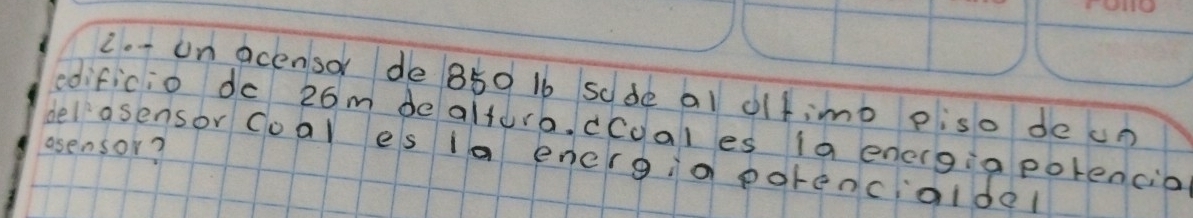 2.- un acensor de 850 lb sude al ultimo piso de un
edificio de 26m de altura. ¿Cual es la energia potencial
del asensor coal es la energia potencial del
asensor?